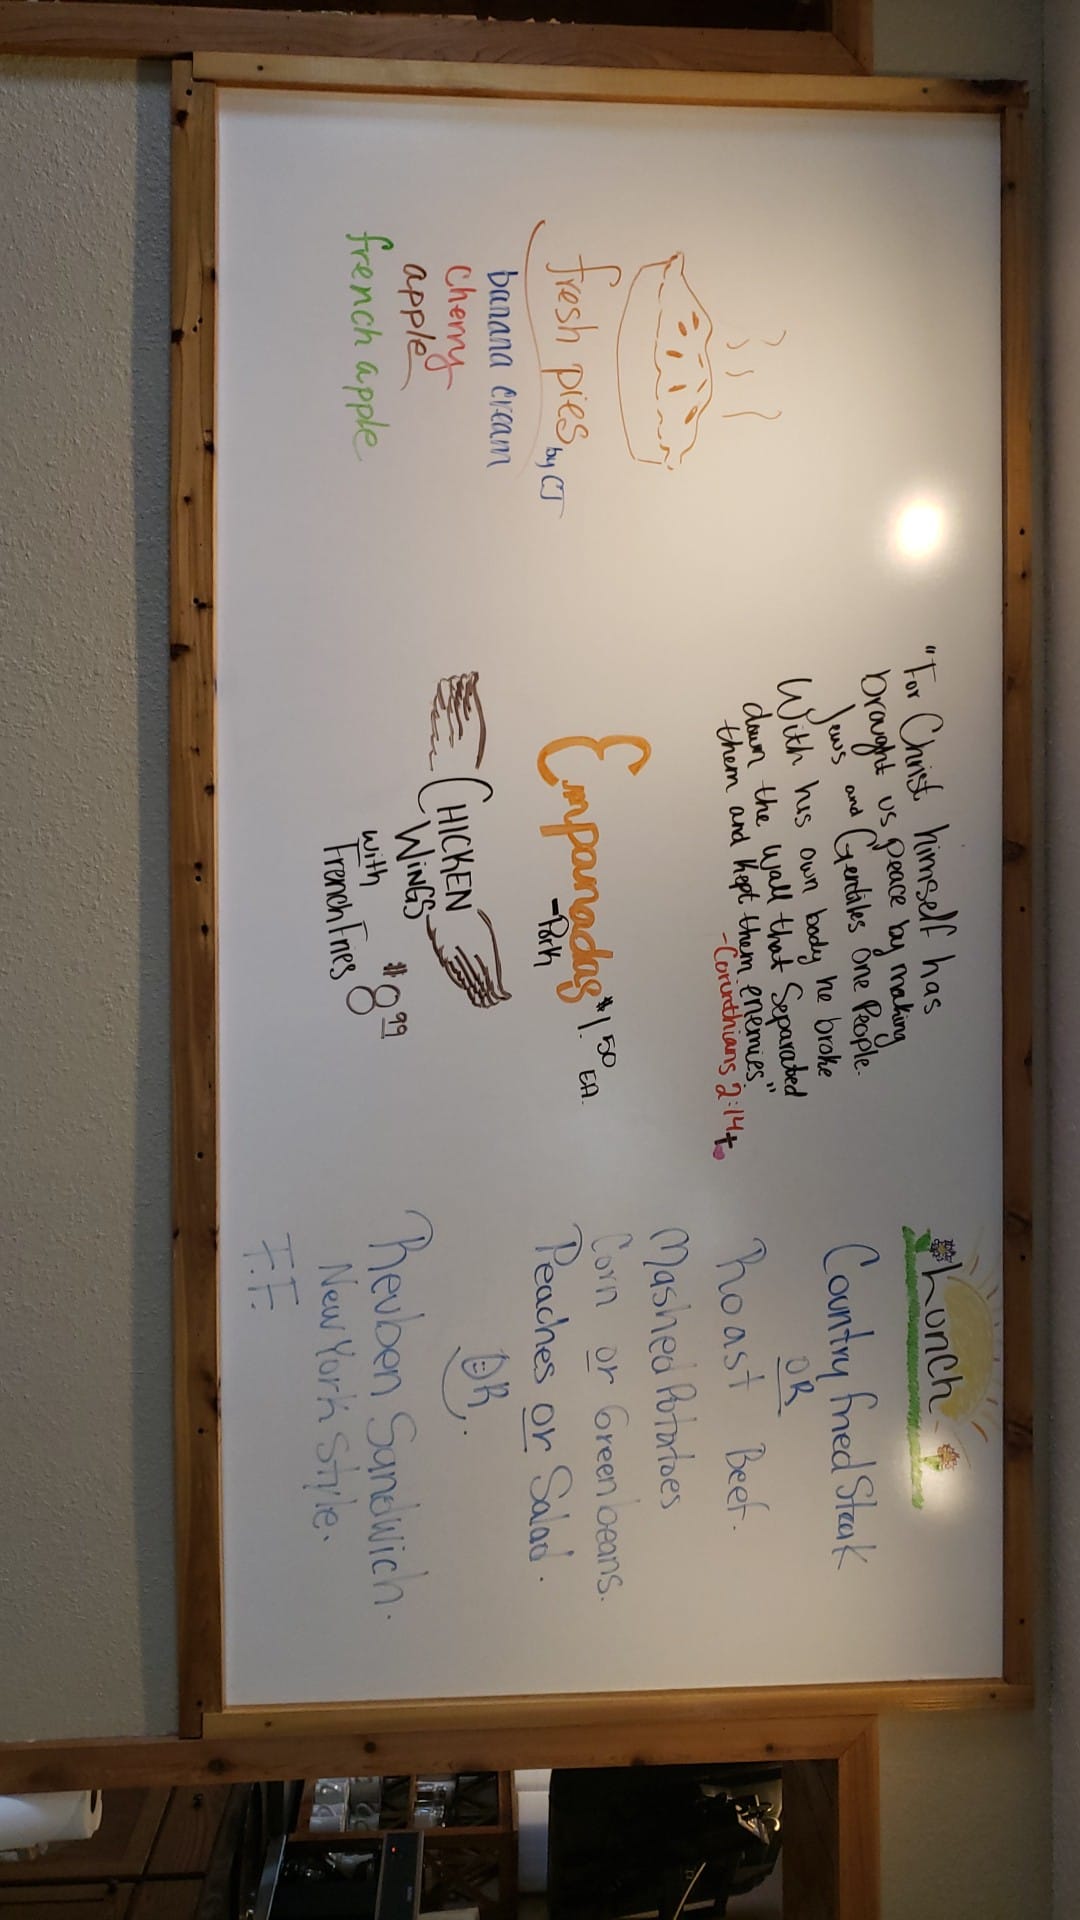 fresh pies by CJ
banana cream
cherry
apple
french apple
"For Christ himself has
brought us peace by making
Jews and Gentiles one People.
With his own body he broke
down the wall that Separated
them and kept them enemies"
-Corinthians 2:14+
Empanadas $1.50 EA.
-Pork
CHICKEN
WINGS
with
French Fries $8.99
Lunch
Country fried Steak
OR
Roast Beef.
Mashed Potatoes
Corn or Green beans.
Peaches or Salad.
OR
Reuben Sandwich.
New York Style.
F.F.